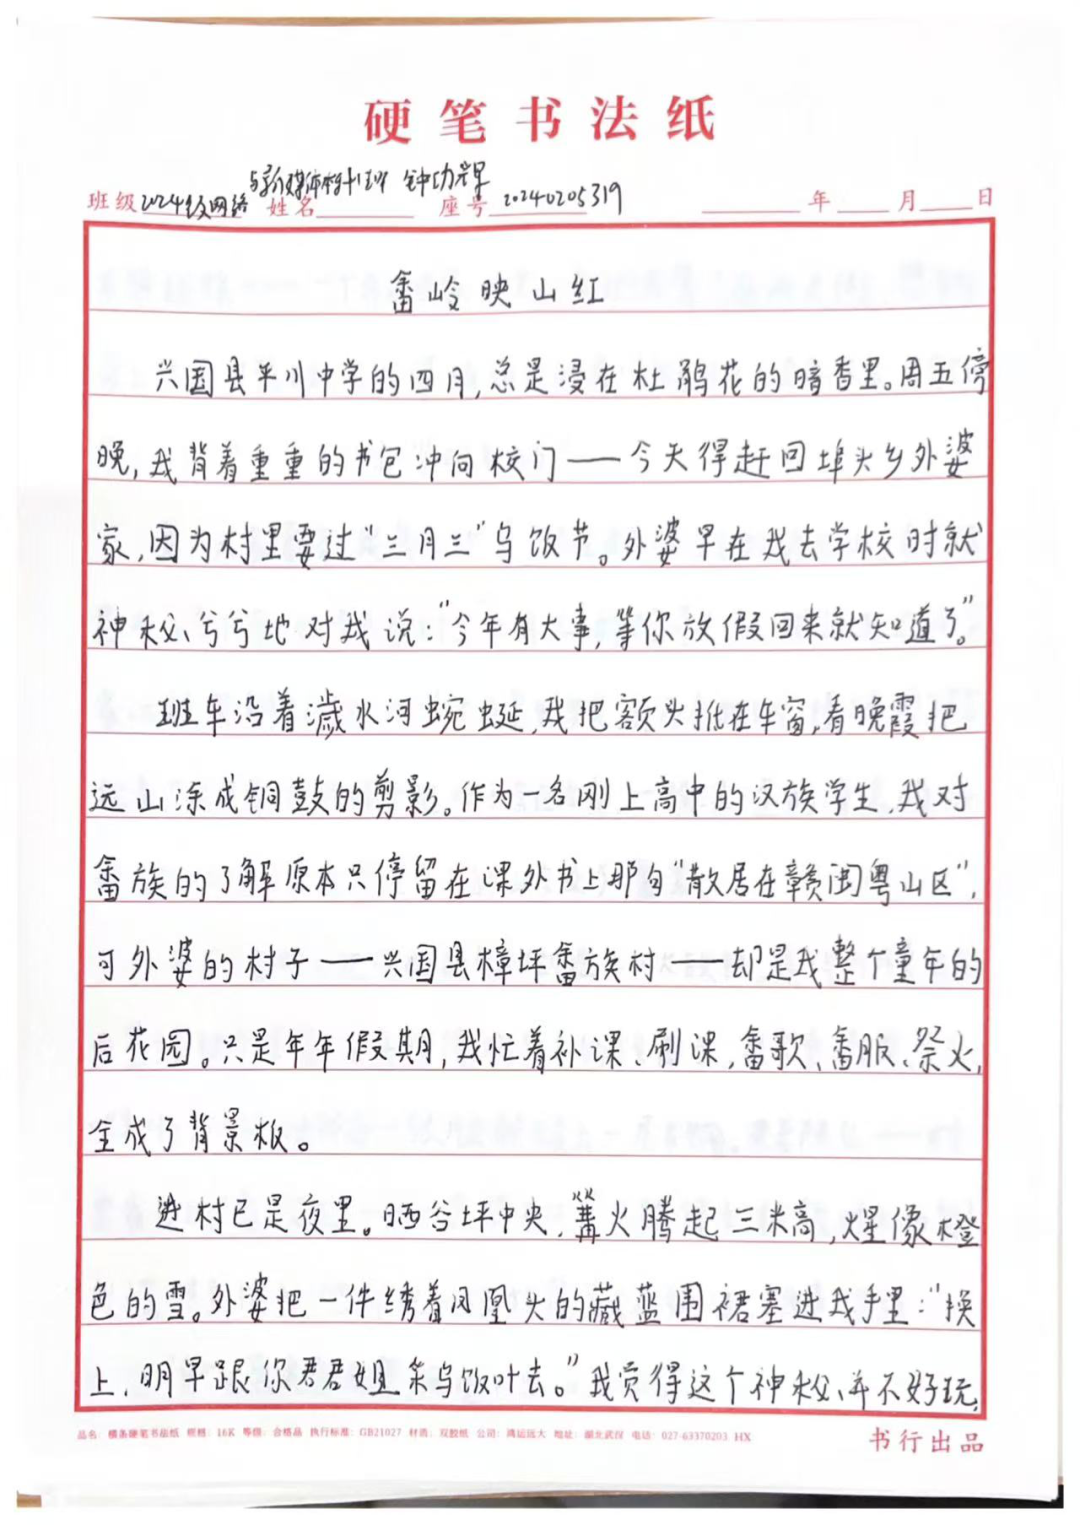 硬笔书法纸
与新媒体 钟功
班级2024级网络 姓名 座号20240205319 年 月 日
畲岭映山红
兴国县平川中学的四月,总是浸在杜鹃花的暗香里。周五傍
晚,我背着重重的书包冲向校门——今天得赶回埠头乡外婆
家,因为村里要过“三月三”乌饭节。外婆早在我去学校时就
神秘兮兮地对我说:“今年有大事,等你放假回来就知道了。”
班车沿着潋水河蜿蜒,我把额头抵在车窗,看晚霞把
远山涂成铜鼓的剪影。作为一名刚上高中的汉族学生,我对
畲族的了解原本只停留在课外书上那句“散居在赣闽粤山区”,
可外婆的村子——兴国县樟坪畲族村——却是我整个童年的
后花园。只是年年假期,我忙着补课、刷课,畲歌、畲服、祭火,
全成了背景板。
进村已是夜里。晒谷坪中央,篝火腾起三米高,火星像橙
色的雪。外婆把一件绣着凤凰火的藏蓝围裙塞进我手里:“换
上,明早跟你君君姐采乌饭叶去。”我觉得这个神秘并不好玩,
品名:横条硬笔书法纸 规格:16K 等级:合格品 执行标准:GB21027 材质:双胶纸 公司:鸿运远大 地址:湖北武汉 电话:027-63370203 HX
书行出品